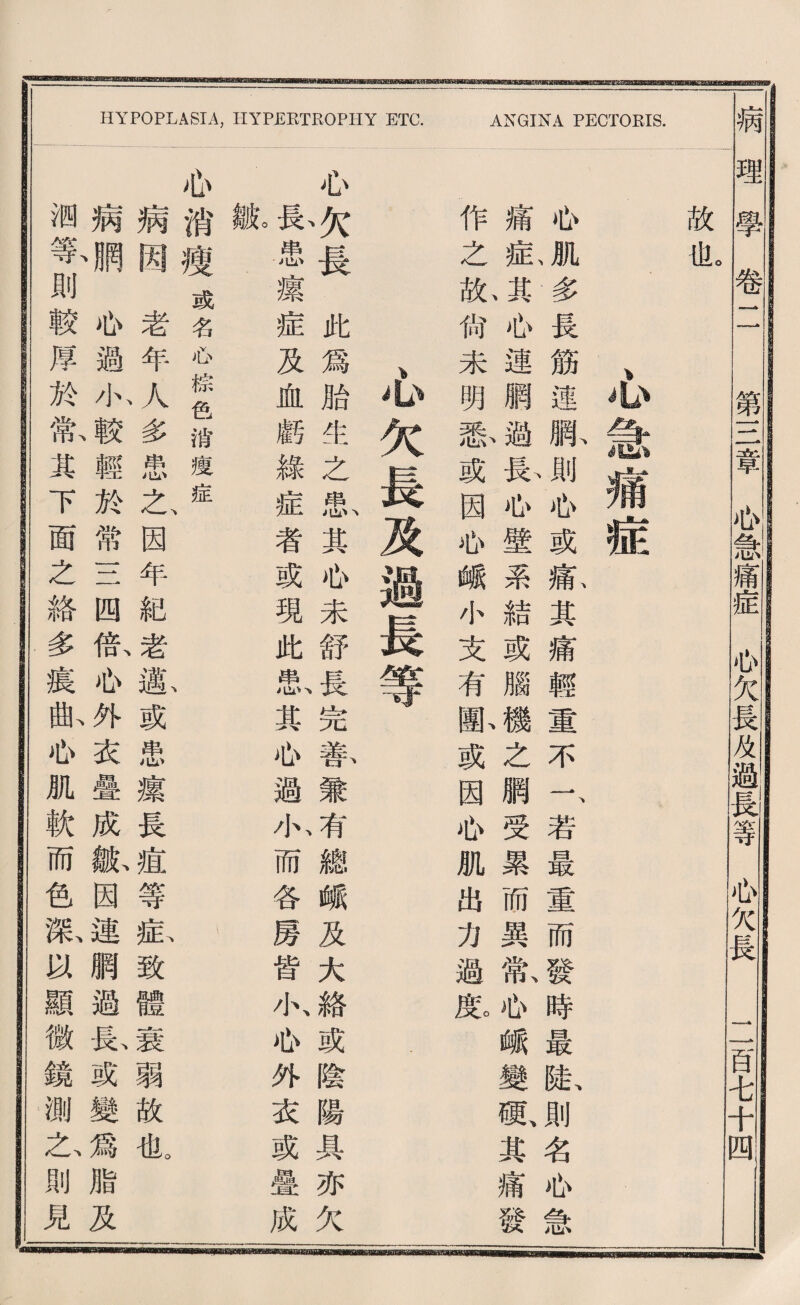 病理學卷二 第三章 心急痛症 心欠長及過長等 心欠長 二百七十四
HYPOPLASIA, HYPERTROPHY ETC.
ANGINA PECTORIS.
故也。
心急痛症
心肌多長筋連膶、則心或痛、其痛輕重不一、若最重而發時最陡、則名心急
痛症、其心連膶過長、心壁系結或腦機之膶受累而異常、心衇變硬、其痛發
作之故、尙未明悉、或因心衇小支有團、或因心肌出力過度。
心欠長及過長等
心欠長 此爲胎生之患、其心未舒長完善、兼有總衇及大絡或陰陽具亦欠
長、患瘰症及血虧綠症者或現此患、其心過小、而各房皆小、心外衣或疊成
皺。
心消瘦 或名心棕色消瘦症
病因 老年人多患之、因年紀老邁、或患瘰長疽等症、致體衰弱故也。
病膶 心過小、較輕於常三四倍、心外衣疊成皺、因連膶過長、或變爲脂及
泗等、則較厚於常、其下面之絡多痕曲、心肌軟而色深、以顯微鏡測之、則見